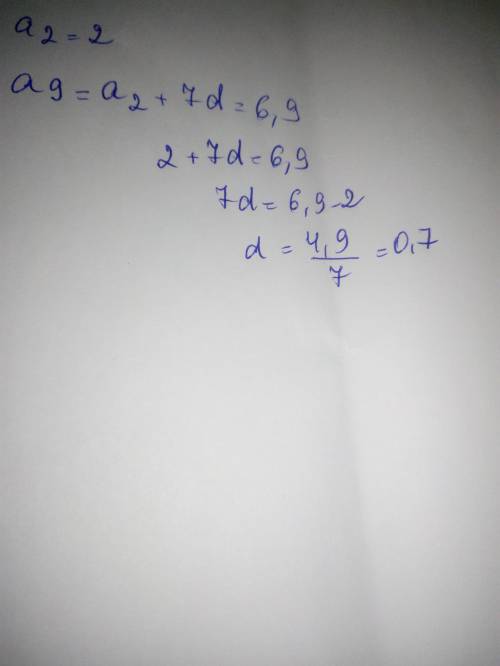 a₂ = 2
a₉ = a₂ + 7d = 6,9
2 + 7d = 6,9
7d = 6,9 - 2
d = 4,9/7 = 0,7